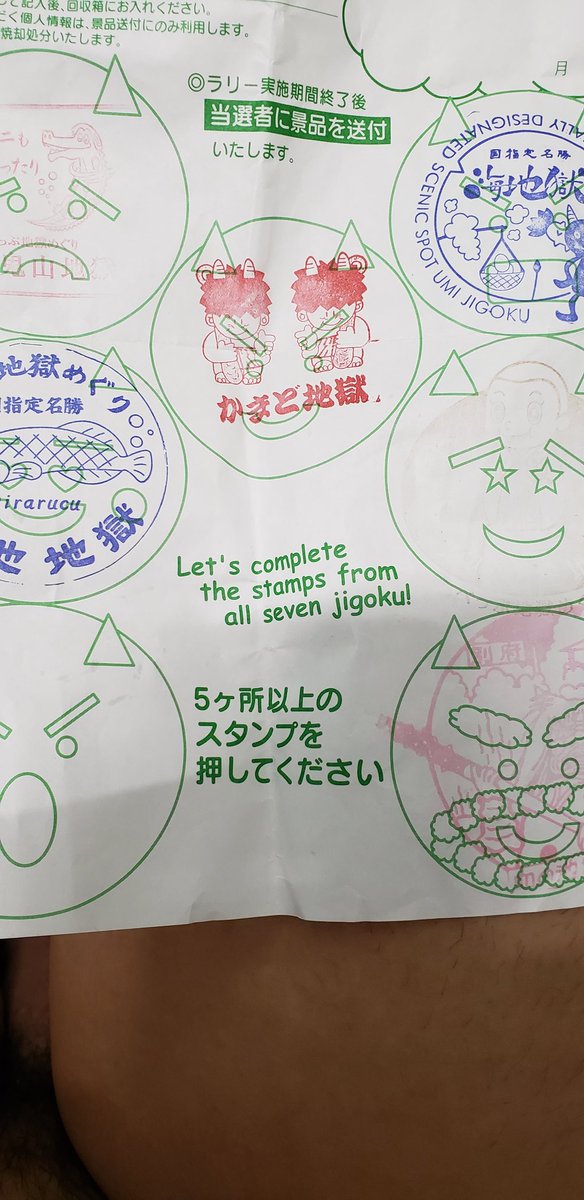 記入後、回収箱にお入れください。
だく個人情報は、景品送付にのみ利用します。
焼却処分いたします。
月
◎ラリー実施期間終了後
当選者に景品を送付
いたします。
ALLY DESIGNATED SCENIC SPOT UMI JIGOKU
国指定名勝
海地獄
ニも
ったり
地獄めぐり
山地
かまど地獄
地獄めぐり
国指定名勝
irarucu
地獄
Let's complete
the stamps from
all seven jigoku!
5ヶ所以上の
スタンプを
押してください